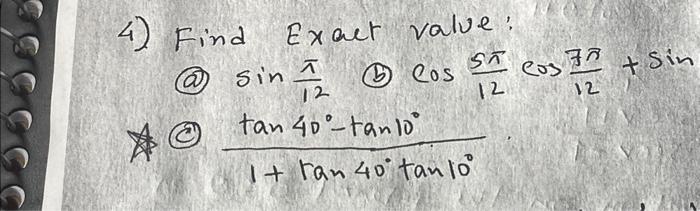 4) Find Exact value:
ⓐ sin π/12 ⓑ cos 5π/12 cos 7π/12 + sin
☆ ⓒ tan 40° - tan 10°
1 + tan 40° tan 10°